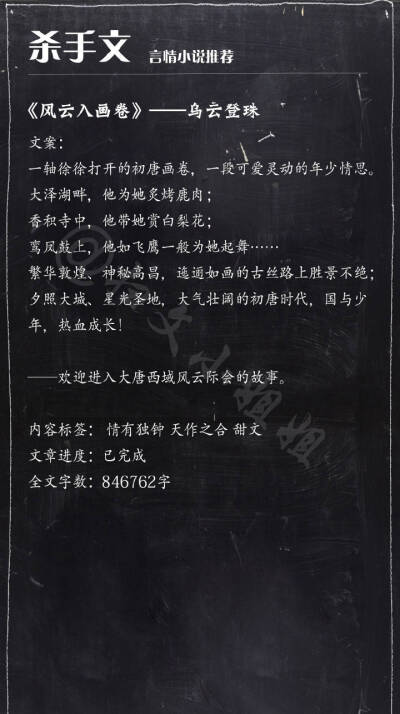 杀手文 言情小说推荐
《风云入画卷》——乌云登珠
文案：
一轴徐徐打开的初唐画卷，一段可爱灵动的年少情思。
大泽湖畔，他为她炙烤鹿肉；
香积寺中，他带她赏白梨花；
鸾凤鼓上，他如飞鹰一般为她起舞……
繁华敦煌、神秘高昌，迤逦如画的古丝路上胜景不绝；
夕照大城、星光圣地，大气壮阔的初唐时代，国与少
年，热血成长！
——欢迎进入大唐西域风云际会的故事。
内容标签： 情有独钟 天作之合 甜文
文章进度：已完成
全文字数：846762字